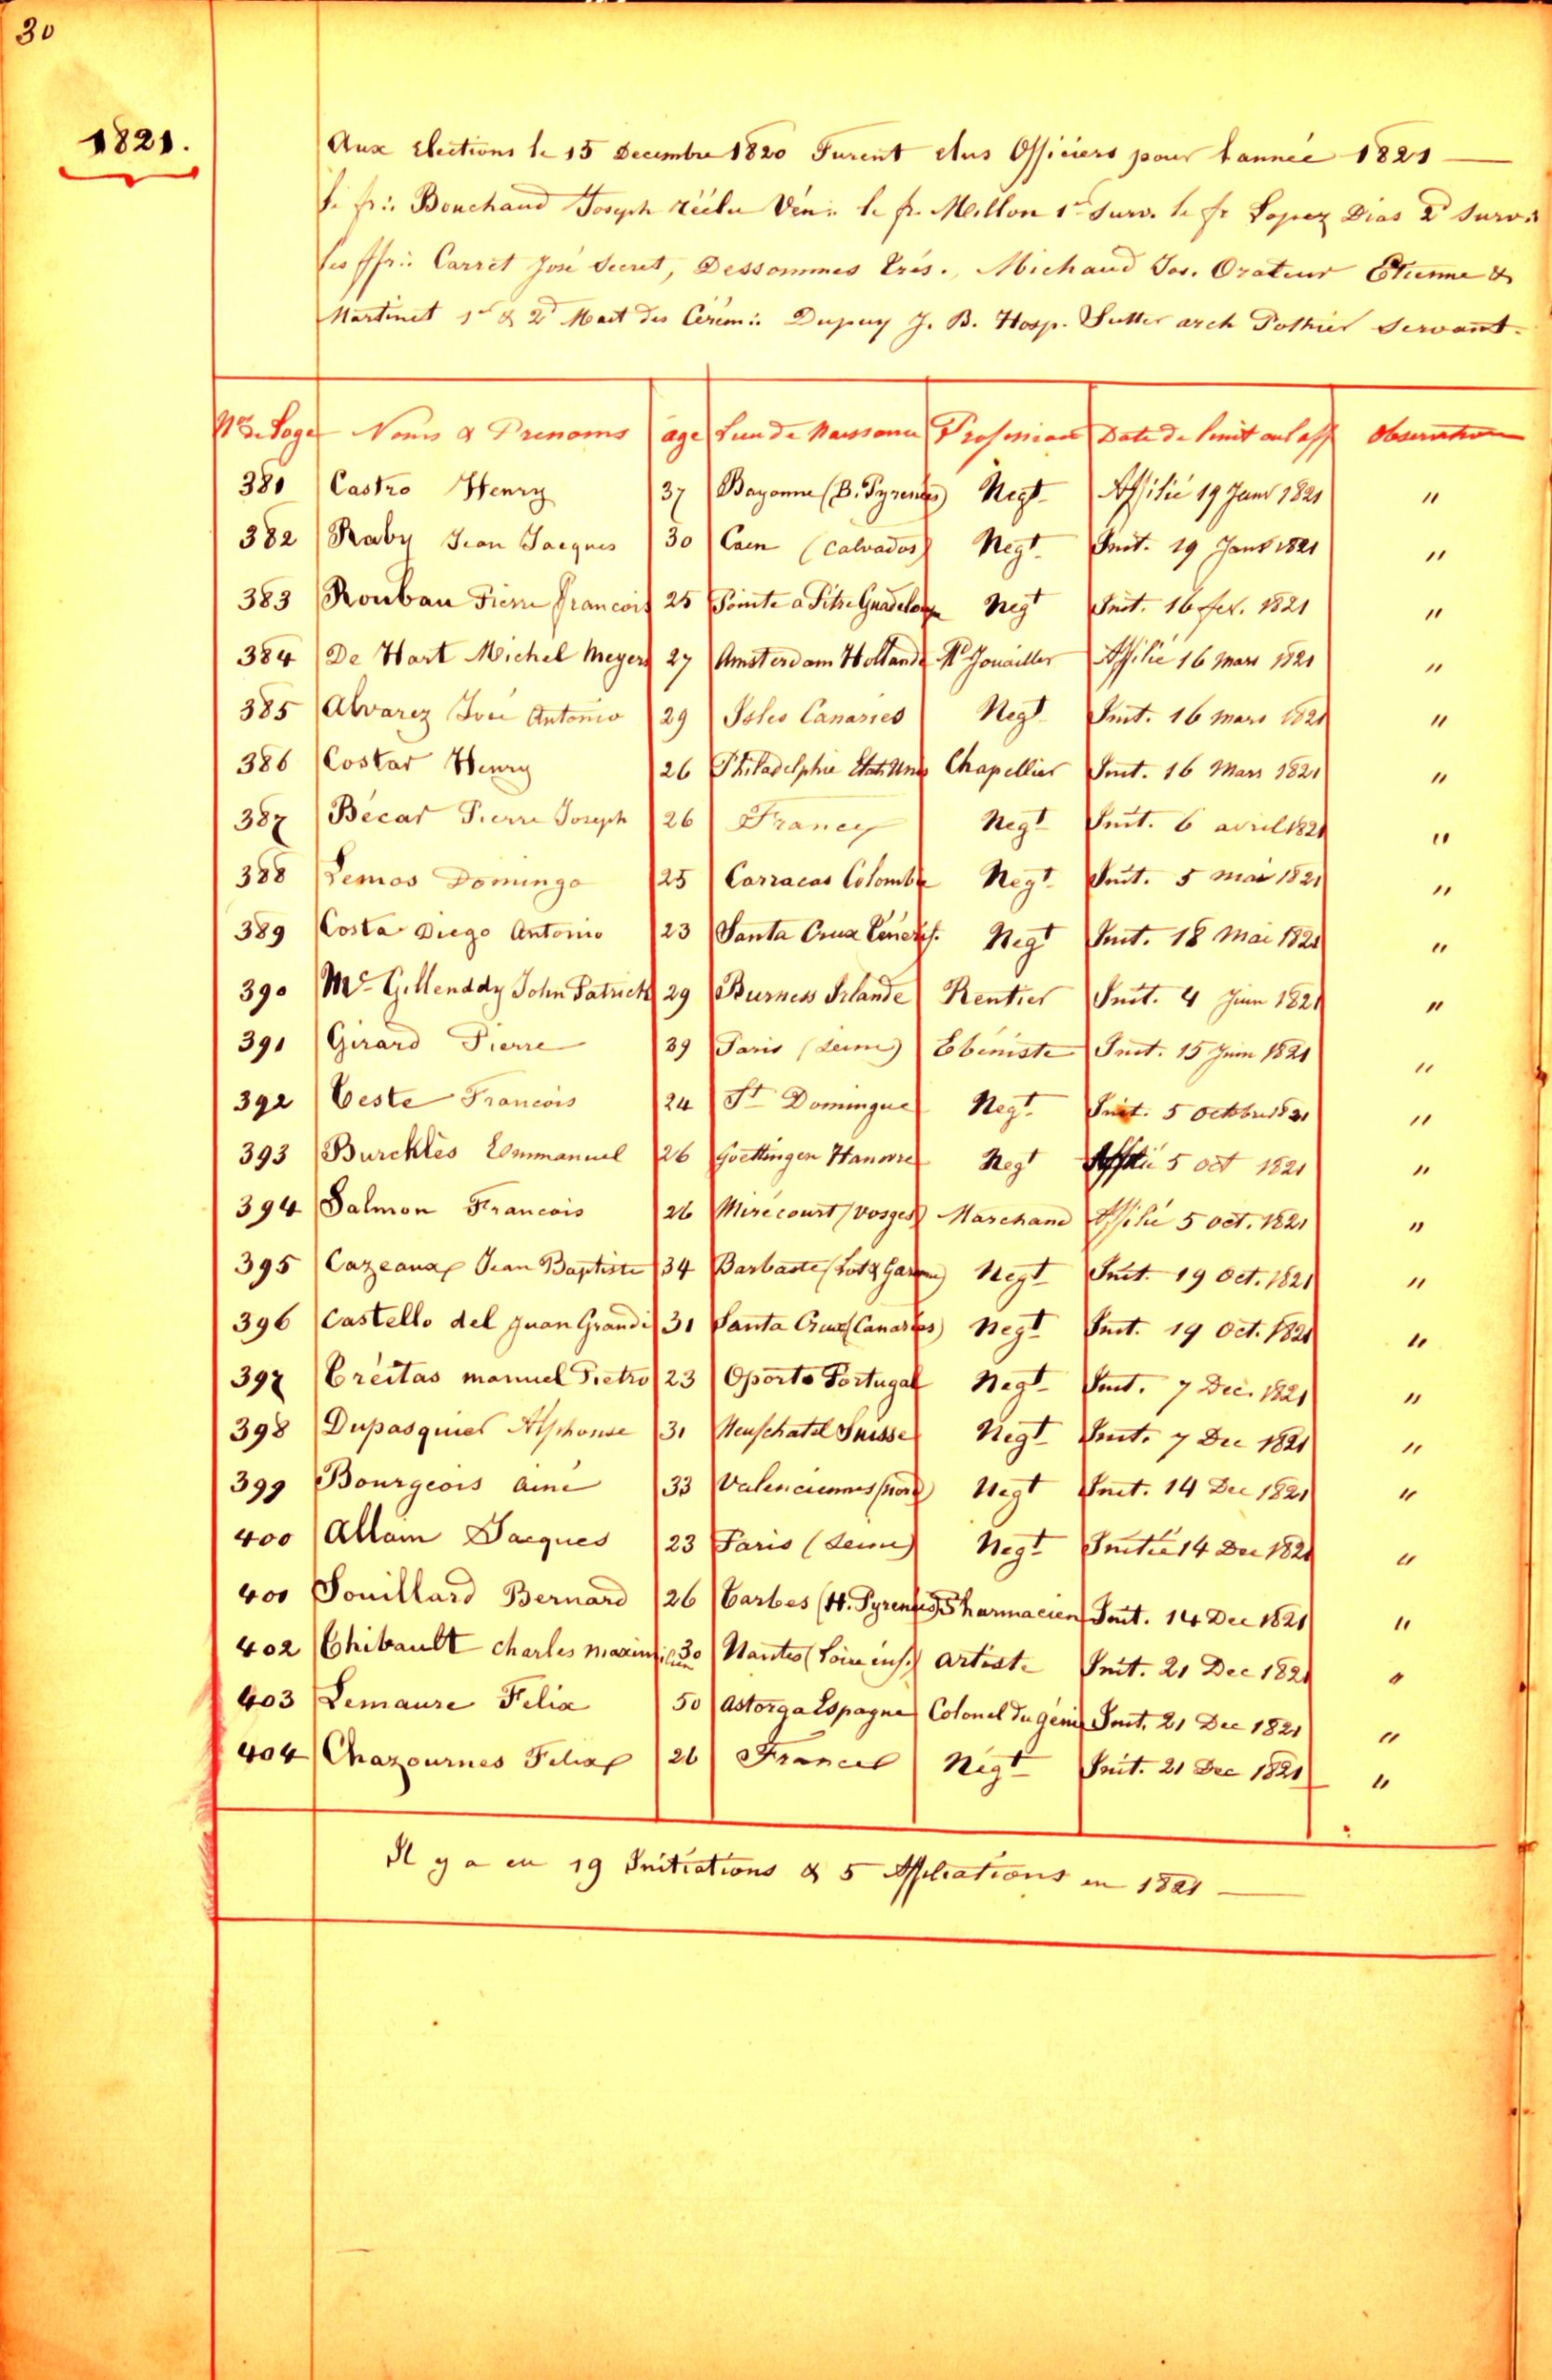 30
1821.
Aux Elections le 15 Decembre 1820 Furent elus Officiers pour l'année 1821
le fr∴ Bouchaud Joseph réélu Vén∴ le fr. Millon 1er Surv. le fr Lopez Dias 2d Surv∴
les ffr∴ Carret José Secret, Dessommes Trés., Michaud Jos. Orateur Etienne &
Martinet 1er & 2d Mait des Cérém∴ Dupuy J. B. Hosp. Sutter arch Pothier Servant.
No de Loge Noms & Prenoms age Lieu de Naissance Profession Date de l'init ou l'aff Observation
381 Castro Henry 37 Bayonne (B. Pyrenées) Negt Affilié 19 Janv 1821 "
382 Raby Jean Jacques 30 Caen (Calvados) Negt Init. 19 Janv 1821 "
383 Roubau Pierre Francois 25 Pointe a Pitre Guadeloupe Negt Init. 16 fev. 1821 "
384 De Hart Michel Meyers 27 Amsterdam Hollande Md Jouailler Affilié 16 Mars 1821 "
385 Alvarez José Antonio 29 Isles Canaries Negt Init. 16 mars 1821 "
386 Costar Henry 26 Philadelphie Etats Unis Chapellier Init. 16 Mars 1821 "
387 Bécar Pierre Joseph 26 France Negt Init. 6 avril 1821 "
388 Lemos Domingo 25 Carracas Colombie Negt Init. 5 mai 1821 "
389 Costa Diego Antonio 23 Santa Cruz Ténérif. Negt Init. 18 Mai 1821 "
390 Mc Gillenddy John Patrick 29 Burness Irlande Rentier Init. 4 Juin 1821 "
391 Girard Pierre 39 Paris (Seine) Ebéniste Init. 15 Juin 1821 "
392 Teste Francois 24 St Domingue Negt Init. 5 Octobre 1821 "
393 Burcklès Emmanuel 26 Goettingen Hanovre Negt Affilié 5 oct 1821 "
394 Salmon Francois 26 Mirécourt (Vosges) Marchand Affilié 5 oct. 1821 "
395 Cazeaux Jean Baptiste 34 Barbaste (Lot & Garonne) Negt Init. 19 Oct. 1821 "
396 Castello del Juan Grandi 31 Santa Cruz (Canaries) Negt Init. 19 Oct. 1821 "
397 Créitas manuel Pietro 23 Oporto Portugal Negt Init. 7 Dec. 1821 "
398 Dupasquier Alphonse 31 Neufchatel Suisse Negt Init. 7 Dec 1821 "
399 Bourgeois ainé 33 Valenciennes (nord) Negt Init. 14 Dec 1821 "
400 Allain Jacques 23 Paris (Seine) Negt Initié 14 Dec 1821 "
401 Souillard Bernard 26 Tarbes (H. Pyrenées) Pharmacien Init. 14 Dec 1821 "
402 Thibault Charles Maximilien 30 Nantes (Loire inf.) Artiste Init. 21 Dec 1821 "
403 Lemaure Felix 50 Astorga Espagne Colonel du génie Init. 21 Dec 1821 "
404 Chazournes Felix 26 France Negt Init. 21 Dec 1821 "
Il y a eu 19 Initiations & 5 Affiliations en 1821